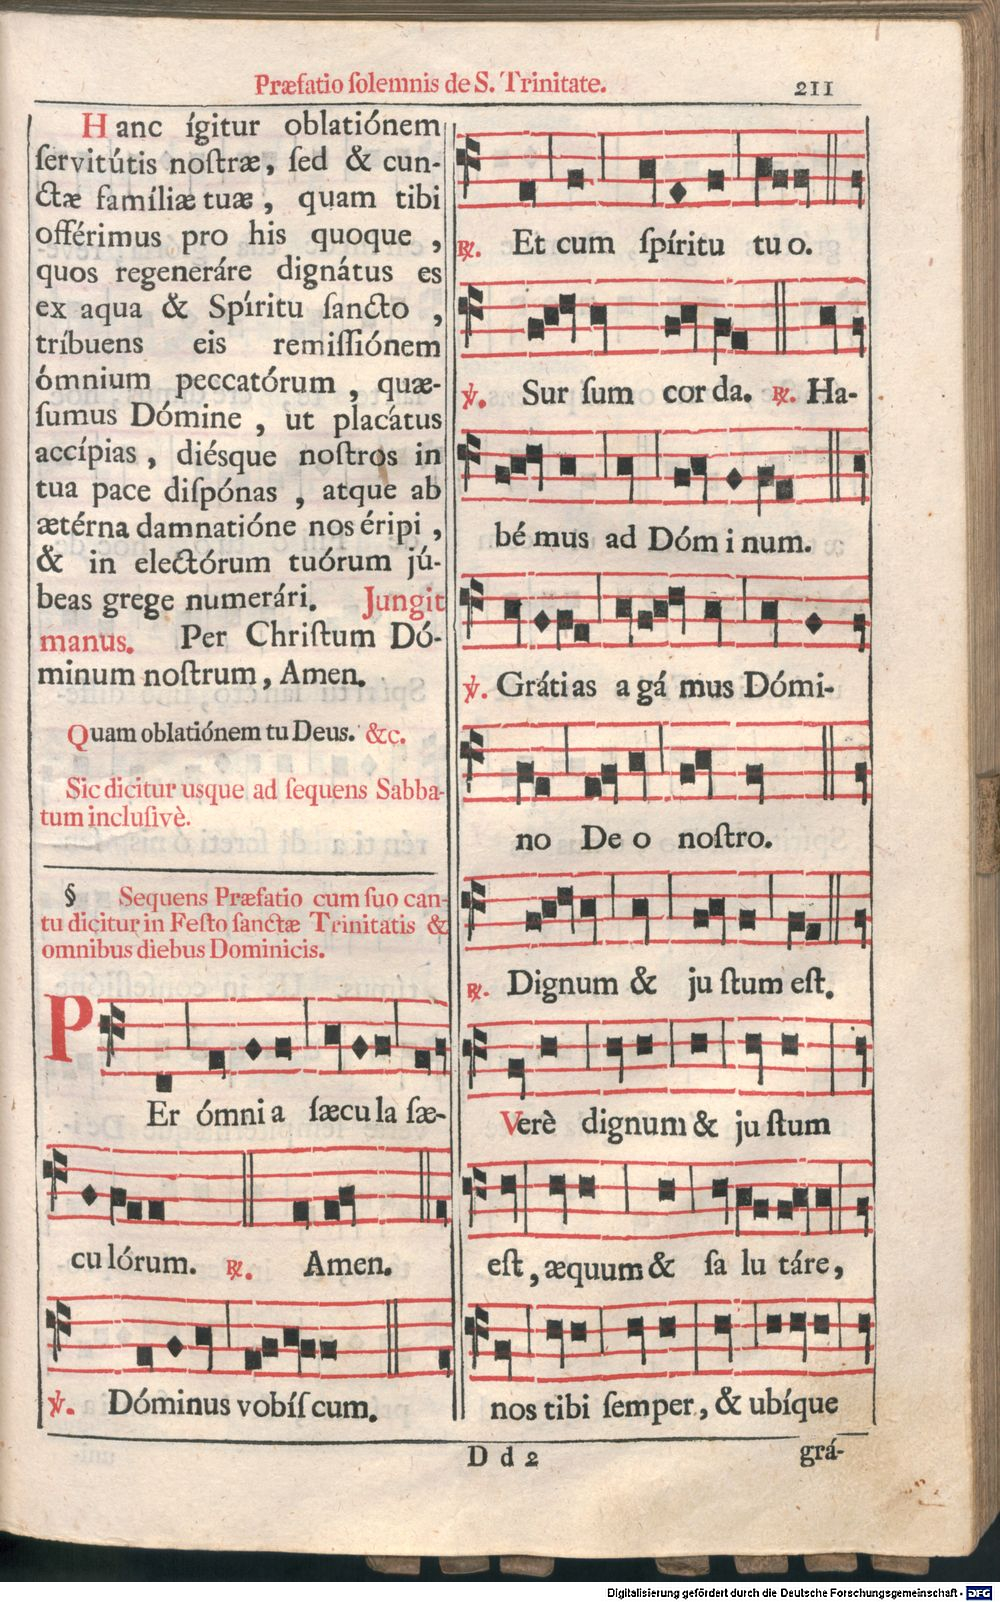 Præfatio ſolemnis de S. Trinitate. 211
Hanc ígitur oblatiónem
ſervitútis noſtræ, ſed & cun-
ctæ famíliæ tuæ, quam tibi
offérimus pro his quoque,
quos regeneráre dignátus es
ex aqua & Spíritu ſancto,
tríbuens eis remiſſiónem
ómnium peccatórum, quæ-
ſumus Dómine, ut placátus
accípias, diésque noſtros in
tua pace diſpónas, atque ab
ætérna damnatióne nos éripi,
& in electórum tuórum jú-
beas grege numerári. Jungit
manus. Per Chriſtum Dó-
minum noſtrum, Amen.
Quam oblatiónem tu Deus. &c.
Sic dicitur usque ad ſequens Sabba-
tum incluſivè.
§ Sequens Præfatio cum ſuo can-
tu dicitur in Feſto ſanctæ Trinitatis &
omnibus diebus Dominicis.
P
Er ómni a ſæcu la ſæ-
cu lórum. ℟. Amen.
℣. Dóminus vobíſ cum.
℟. Et cum ſpíritu tu o.
℣. Sur ſum cor da. ℟. Ha-
bé mus ad Dóm i num.
℣. Gráti as a gá mus Dómi-
no De o noſtro.
℟. Dignum & ju ſtum eſt.
Verè dignum & ju ſtum
eſt, æquum & ſa lu táre,
nos tibi ſemper, & ubíque
D d 2 grá-
Digitalisierung gefördert durch die Deutsche Forschungsgemeinschaft - DFG